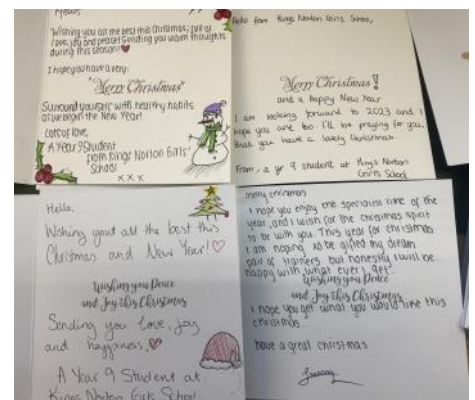 Hello,
Wishing you all the best this Christmas, full of
love, joy and peace! Sending you warm thoughts
during this season!
I hope you have a very:
"Merry Christmas"
Surround yourself with healthy habits
as we begin the New Year!
Lots of love,
A Year 9 Student
from Kings Norton Girls'
School
x x x
Hello from Kings Norton Girls School,
Merry Christmas!
and a happy New Year
I am looking forward to 2023 and I
hope you are too. I'll be praying for you,
that you have a lovely Christmas.
From, a yr 9 student at Kings Norton
Girls School
Hello,
Wishing you all the best this
Christmas and New Year!
Wishing you Peace
and Joy this Christmas
Sending you love, joy
and happyness,
A Year 9 Student at
Kings Norton Girls School
merry christmas
I hope you enjoy one special time of the
year, and I wish for the christmas spirit
to be with you. This year for christmas
I am hoping to be gifted my dream
pair of trainers but honestly I will be
happy with what ever I get.
Wishing you Peace
and Joy this Christmas
I hope you get what you would like this
christmas.
have a great christmas